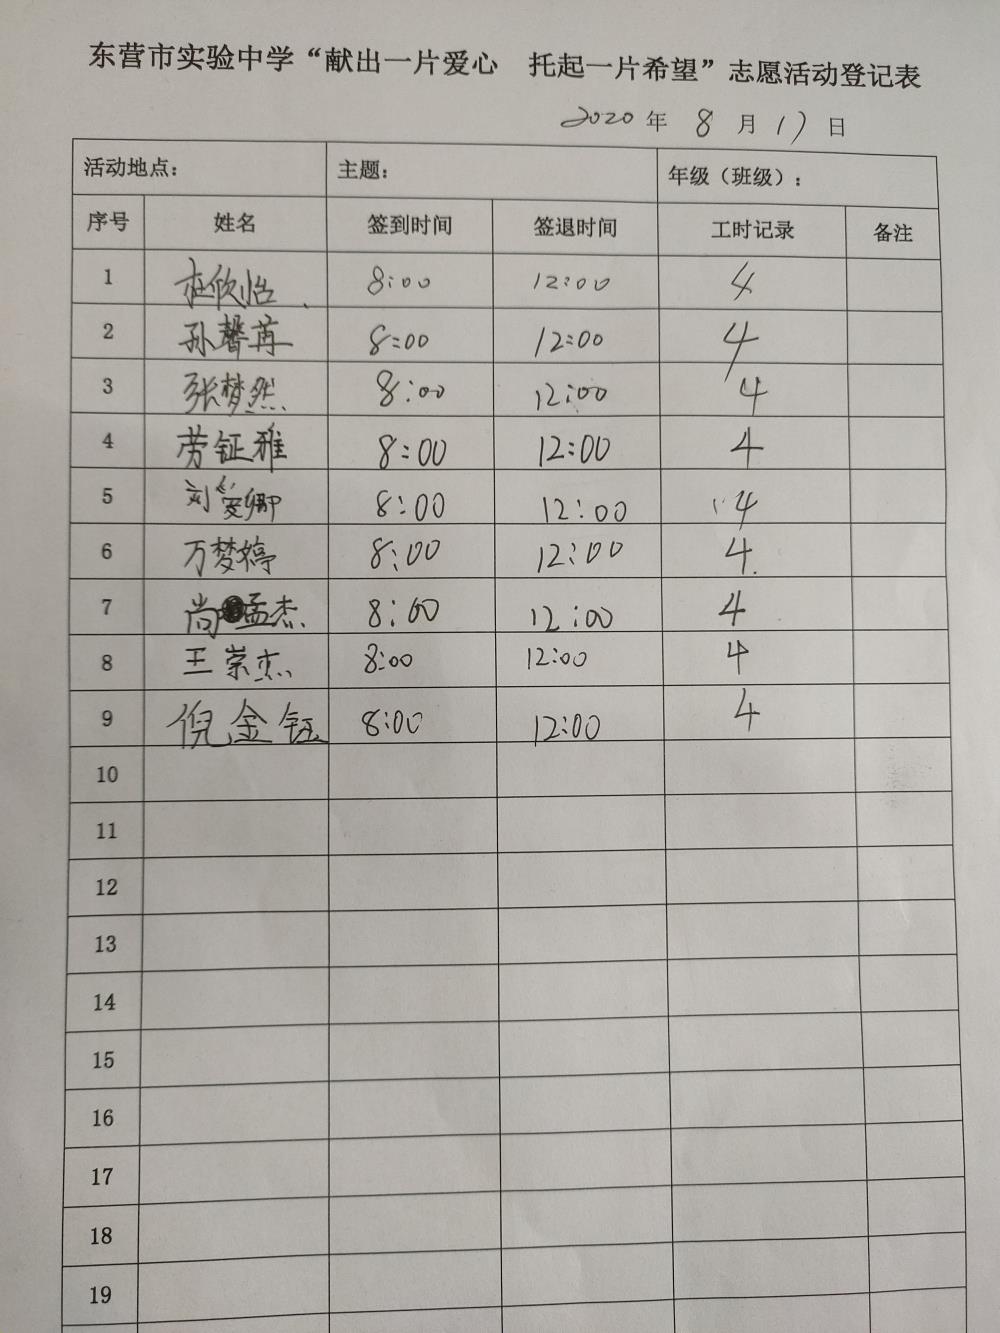 东营市实验中学“献出一片爱心 托起一片希望”志愿活动登记表
2020 年 8 月 17 日
活动地点： 主题： 年级（班级）：
序号 姓名 签到时间 签退时间 工时记录 备注
1 杜欣怡 8:00 12:00 4
2 孙馨苒 8:00 12:00 4
3 张梦然 8:00 12:00 4
4 劳钲雅 8:00 12:00 4
5 刘爱卿 8:00 12:00 4
6 万梦婷 8:00 12:00 4
7 尚孟杰 8:00 12:00 4
8 王崇杰 8:00 12:00 4
9 倪金钰 8:00 12:00 4
10
11
12
13
14
15
16
17
18
19